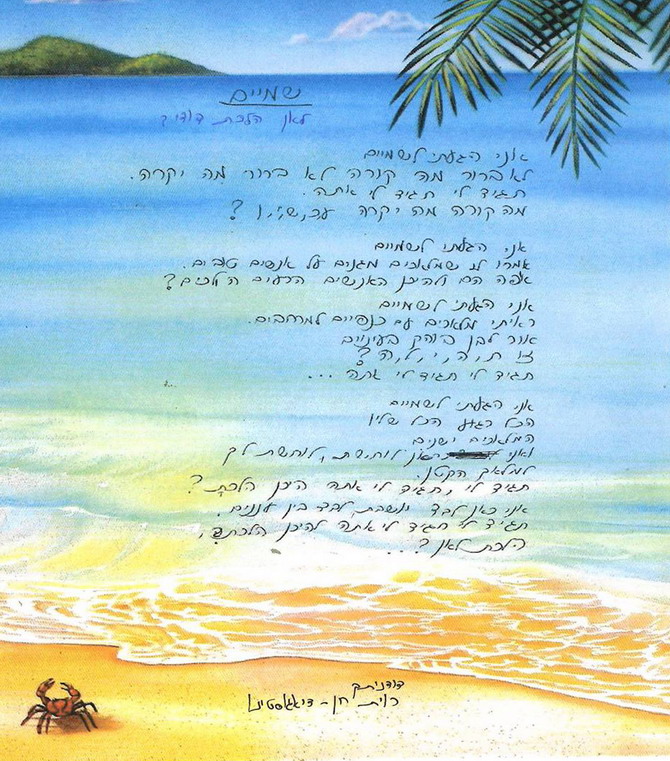 שמיים
לאן הלכת דודי?
אני הגעתי לשמיים
לא ברור מה קורה לא ברור מה יקרה.
תגיד לי תגיד לי אתה.
מה קורה מה יקרה עכ,ש,י,ו ?
אני הגעתי לשמיים
אמרו לי שמלאכים מגנים על אנשים טובים.
איפה הם ולהיכן האנשים הרעים הולכים?
אני הגעתי לשמיים
ראיתי מלאכים עם כנפיים למרחבים.
אור לבן בוהק בעיניים
זו ת,ה,י,ל,ה ?
תגיד לי תגיד לי אתה ...
אני הגעתי לשמיים
הכל רגוע הכל שליו
המלאכים ישנים
ואני כאן לוחשת, לוחשת לך
למלאך הקטן.
תגיד לי, תגיד לי אתה היכן הלכת?
אני כאן לבד יושבת לבד בין עננים.
תגיד לי תגיד לי אתה להיכן הלכת?,
הלכת לאן ?...
דודניתך
רוית חן - דיאגוסטינו